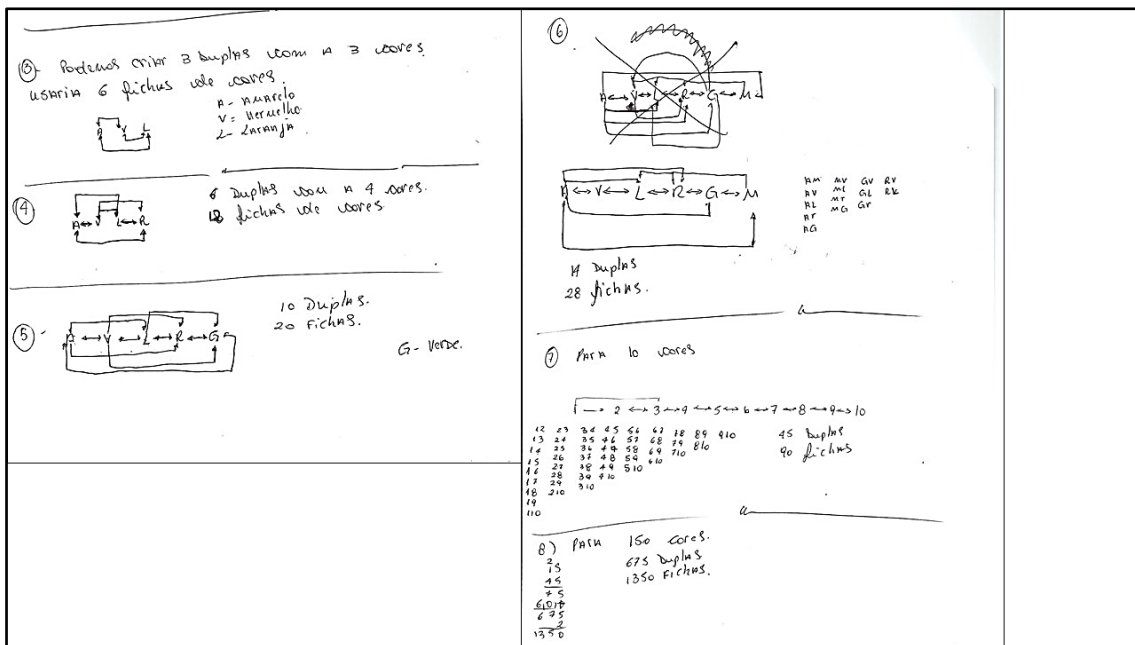 ③- Podemos criar 3 duplas com A 3 cores.
usaria 6 fichas de cores.
A - AMARELO
V = Vermelho
L - LARANJA
A V L
④
6 Duplas com A 4 cores.
12 fichas de cores.
A ↔ V L ↔ R
⑤ -
10 Duplas.
20 Fichas.
A ↔ V ↔ L ↔ R ↔ G
G - Verde.
⑥
A ↔ V ↔ L ↔ R ↔ G ↔ M
A ↔ V ↔ L ↔ R ↔ G ↔ M
AM MV GV RV
AV ML GL
AL Mr Gr
Ar MG
AG
14 Duplas
28 fichas.
⑦ PARA 10 cores
1 → 2 ↔ 3 ↔ 4 ↔ 5 ↔ 6 ↔ 7 ↔ 8 ↔ 9 ↔ 10
12 23 34 45 56 67 78 89 910
13 24 35 46 57 68 79 810
14 25 36 47 58 69 710
15 26 37 48 59 610
16 27 38 49 510
17 28 39 410
18 29 310
19 210
110
45 Duplas
90 fichas
8) PARA 150 cores.
675 Duplas
1350 Fichas.
2
15
45
75
675
2
1350